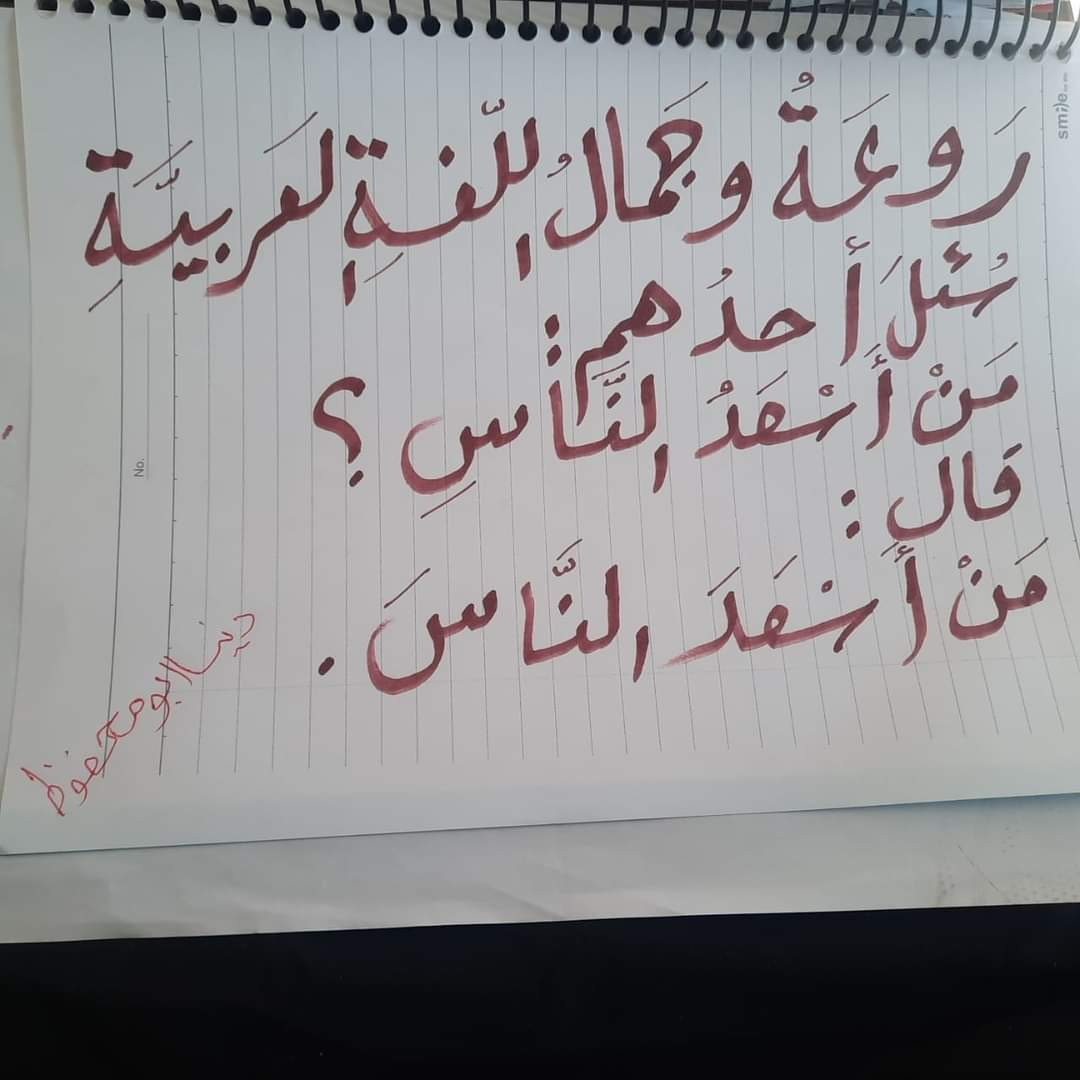 رَوعَةُ وجَمالُ اللّغةِ العَربيَّةِ
سُئلَ أحدُهم:
مَنْ أَسْعَدُ النَّاسِ؟
قَال:
مَنْ أَسْعَدَ النَّاسَ.
دينا ابو محفوظ
smile
No.